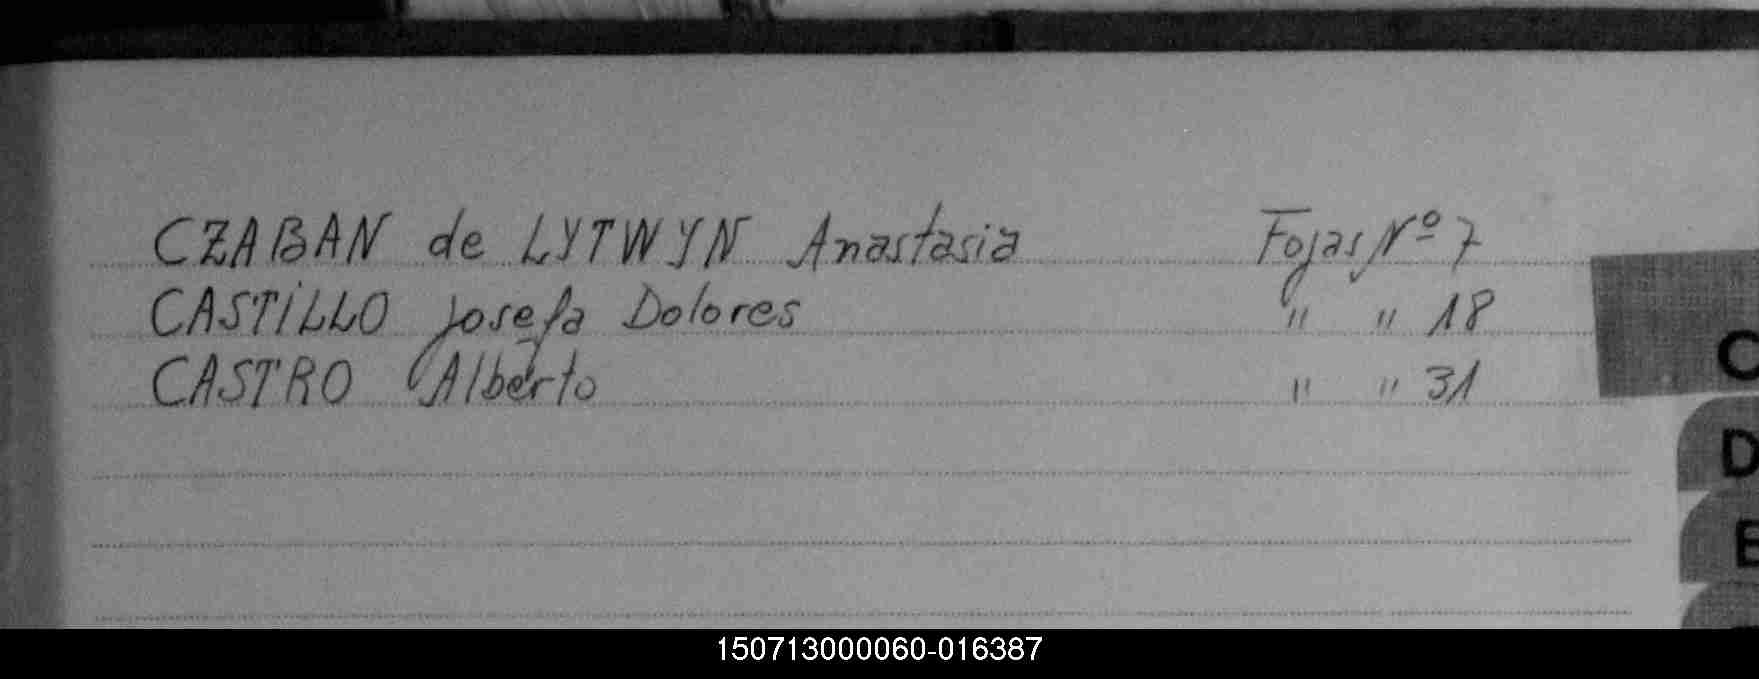 CZABAN de LYTWYN Anastasia Fojas Nº 7
CASTiLLO Josefa Dolores " " 18
CASTRO Alberto " " 31
C
D
E
150713000060-016387